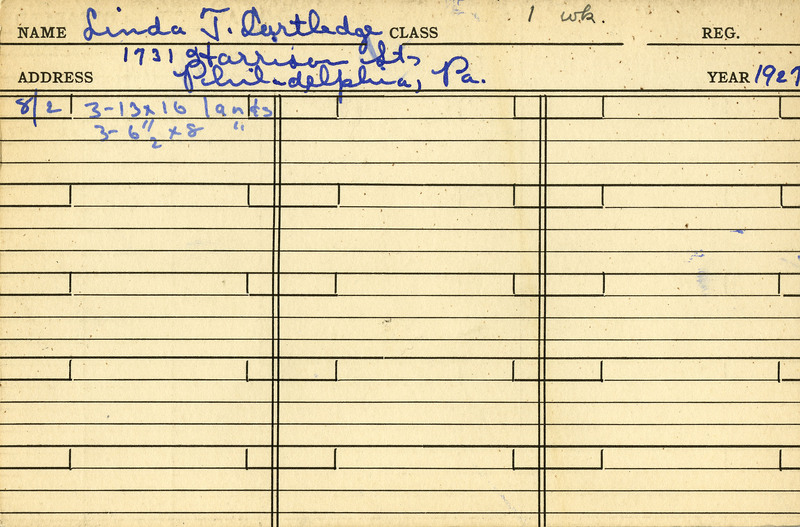 NAME Linda T. Cartledge CLASS 1 wk. REG.
1731 Harrison St.
ADDRESS Philadelphia, Pa. YEAR 1927
8/2 3-13x16 lants
3-6 1/2 x 8 "